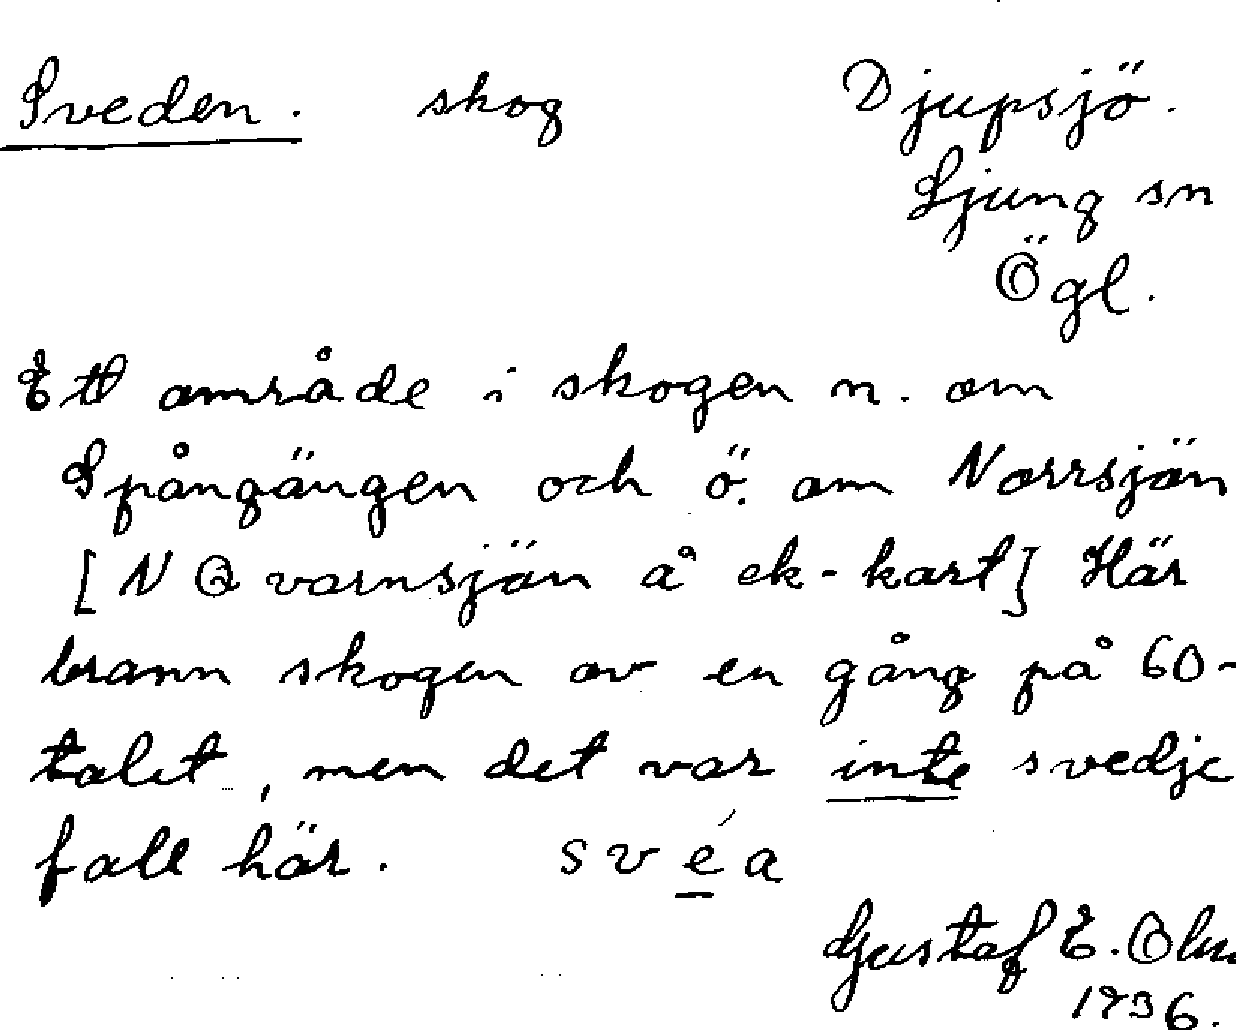 Sveden. skog Djupsjö.
Ljung sn
Ögl.
Ett område i skogen n. om
Spångängen och ö. om Norrsjön
[N Qvarnsjön å ek-kart] Här
brann skogen av en gång på 60-
talet, men det var inte svedje
fall här. svéa
Gustaf E.
1936.